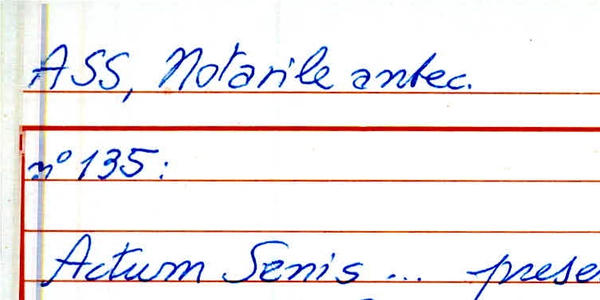 ASS, Notarile antec.
n° 135:
Actum Senis ... prese